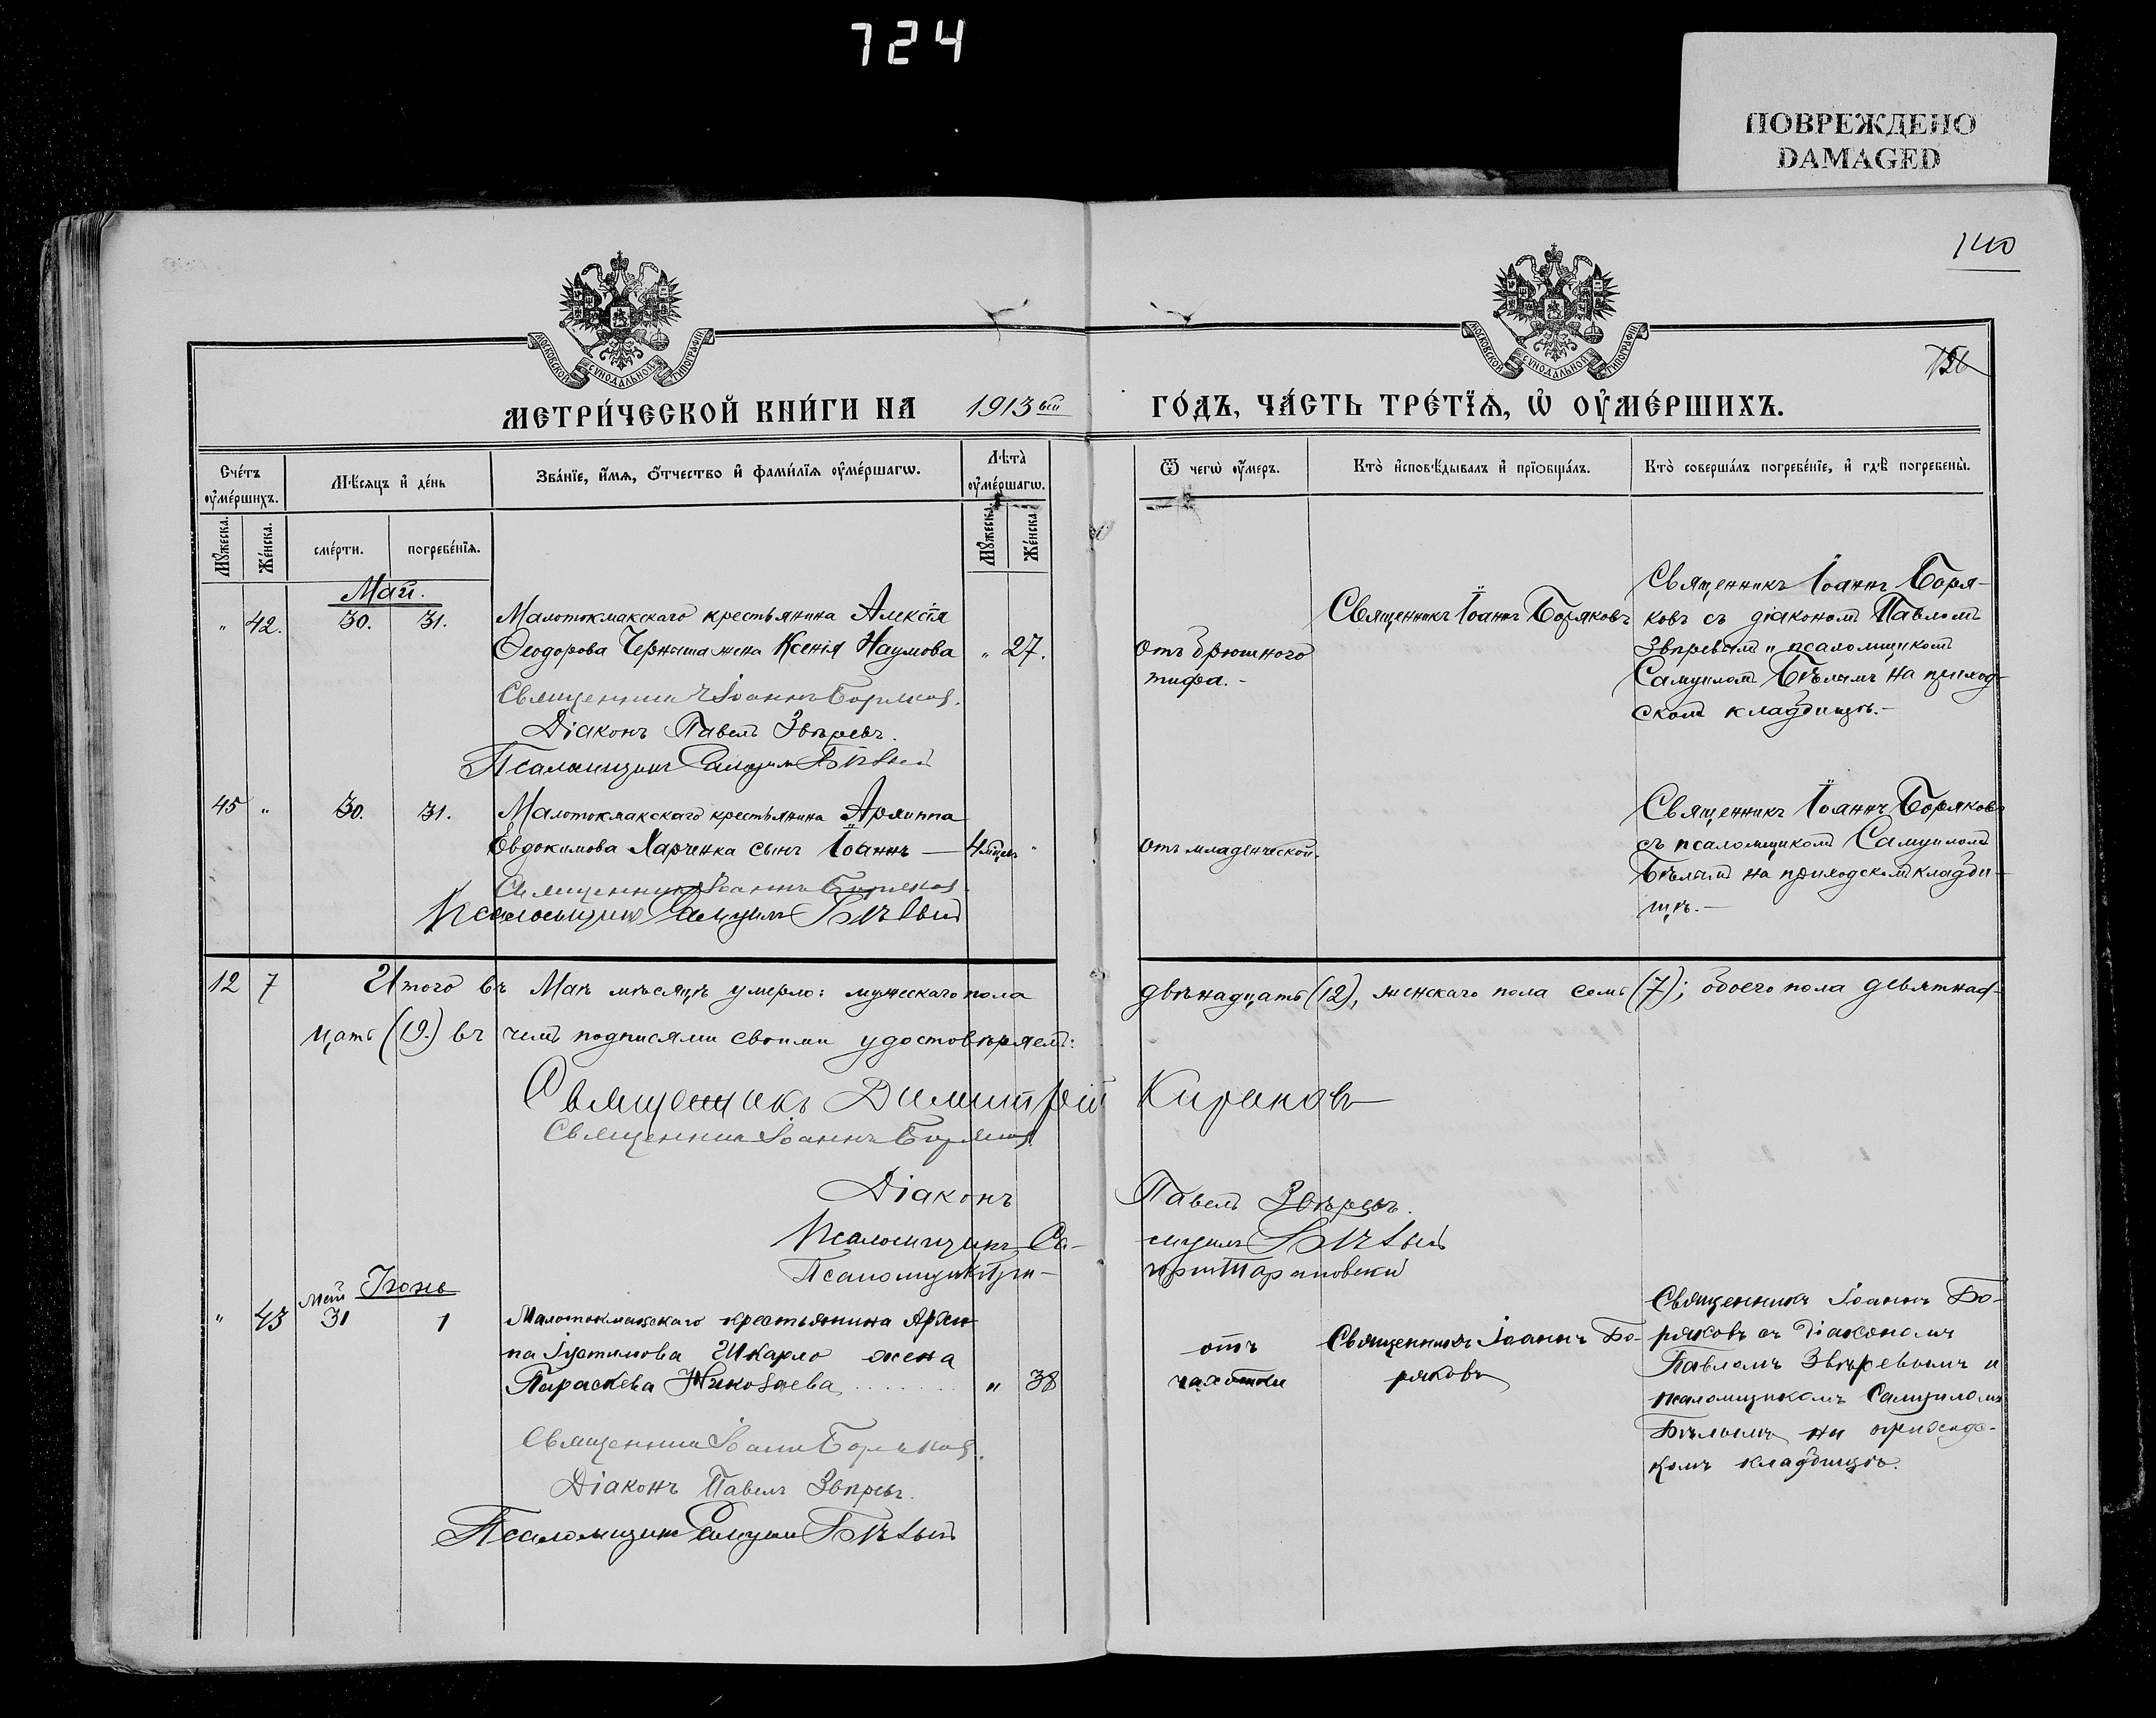 724
ПОВРЕЖДЕНО
DAMAGED
140
МОСКОВСКОЙ СѴНОДАЛЬНОЙ ТИПОГРАФІИ
МОСКОВСКОЙ СѴНОДАЛЬНОЙ ТИПОГРАФІИ
МЕТРИ́ЧЕСКОЙ КНИ́ГИ НА 1913ый ГО́ДЪ, ЧА́СТЬ ТРЕ́ТЇѦ, Ѡ ОУ҆МЕ́РШИХЪ.
Сче́тъ оу҆ме́ршихъ.
Мѣ́сѧцъ и҆ де́нь
Зва́нїе, и҆́мѧ, ѻ҆́тчество и҆ фами́лїѧ оу҆ме́ршагѡ.
Лѣта̀ оу҆ме́ршагѡ.
Ѿ чегѡ̀ оу҆́меръ.
Кто̀ и҆сповѣ́дывалъ и҆ прїѻбща́лъ.
Кто̀ соверша́лъ погребе́нїе, и҆ гдѣ̀ погребены̀.
Мꙋ́жеска.
Же́нска.
сме́рти.
погребе́нїѧ.
Мꙋ́жеска.
Же́нска.
Май.
" 42. 30. 31. Малотокмакскаго крестьянина Алексѣя
Ѳеодорова Черныша жена Ксенія Наумова " 27.
Священникъ Іоаннъ Боряковъ.
Діаконъ Павелъ Звѣревъ.
Псаломщикъ Самуилъ Бѣлый
Отъ брюшного
тифа.-
Священникъ Іоаннъ Боряковъ
Священникъ Іоаннъ Боря-
ковъ съ діакономъ Павломъ
Звѣревымъ и псаломщикомъ
Самуиломъ Бѣлымъ на приход-
скомъ кладбищѣ.-
45 " 30. 31. Малотокмакскаго крестьянина
Евдокимова Харченка сынъ Іоаннъ — 4 мѣсяц. "
Священникъ Іоаннъ Боряковъ
Псаломщикъ Самуилъ Бѣлый
Отъ младенческой.
Священникъ Іоаннъ Боряковъ
съ псаломщикомъ Самуиломъ
Бѣлымъ на приходскомъ кладби-
щѣ.—
12 7 Итого въ Маѣ мѣсяцѣ умерло: мужескаго пола двѣнадцать (12), женскаго пола семь (7); обоего пола девятнад-
цать (19.) въ чемъ подписями своими удостовѣряемъ:
Священникъ Димитрій Киранов
Священникъ Іоаннъ Боряковъ.
Діаконъ Павелъ Звѣревъ.
Псаломщикъ Са- муилъ Бѣлый
Псаломщикъ Гри- горій Тарановскій
Май Іюнь
" 43 31 1 Малотокмакскаго крестьянина Архи-
па Іустимова Шкарло жена
Параскева Николаева ........ " 38
Священникъ Іоаннъ Боряковъ.
Діаконъ Павелъ Звѣревъ.
Псаломщикъ Самуилъ Бѣлый
отъ
чахотки
Священникъ Іоаннъ Бо-
ряковъ
Священникъ Іоаннъ Бо-
ряковъ съ діакономъ
Павломъ Звѣревымъ и
псаломщикомъ Самуиломъ
Бѣлымъ на приходс-
комъ кладбищѣ.